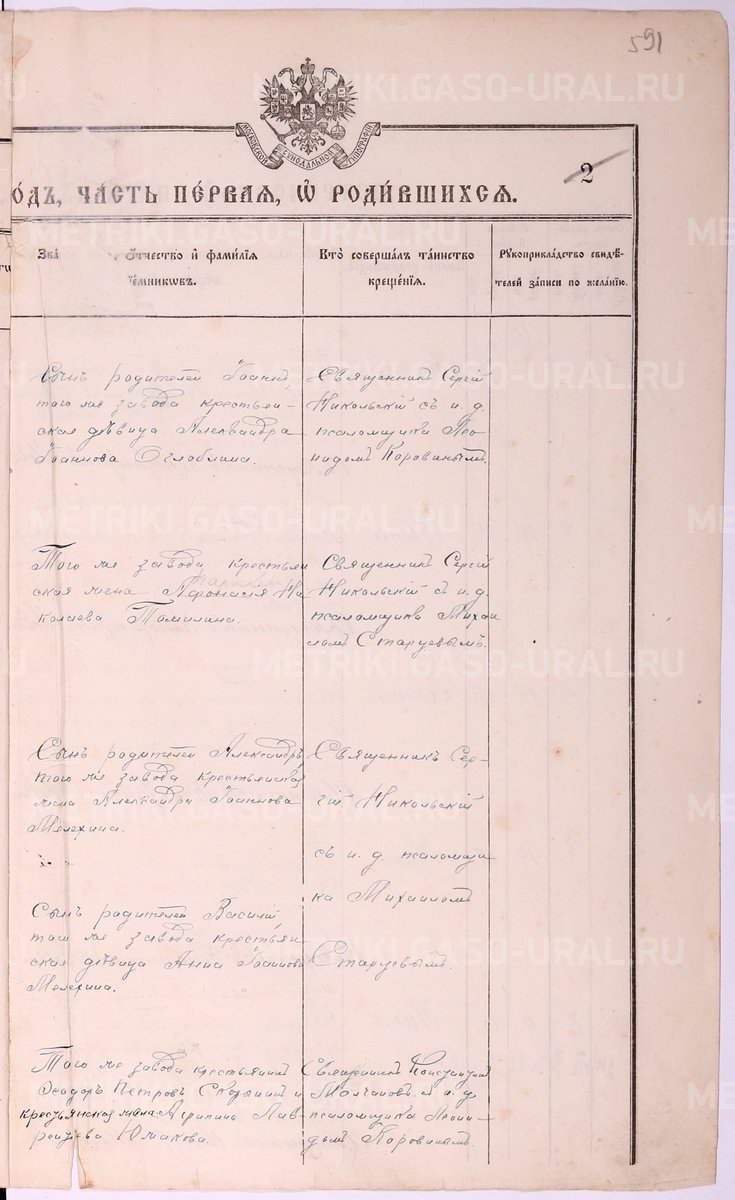 591
МОСКОВСКОЙ СѴНОДАЛЬНОЙ ТИПОГРАФІИ
2
О́ДЪ, ЧА́СТЬ ПЕ́РВАЯ, Ѡ҆ РОДИ́ВШИХСЯ.
Зва́ ѻ҆́тчество и҆ фами́лїя
їе́мникѡвъ.
Кто̀ соверша́лъ та́инство
креще́нїѧ.
Рꙋкоприкла́дство свидѣ́-
телей за́писи по жела́нїю.
Сынъ родителей Іоаннъ,
того же завода крестьян-
ская дѣвица Александра
Іоаннова Оглоблина.
Священникъ Сергій
Никольскій съ и. д.
псаломщика Лео-
нидомъ Коровинымъ.
Того же завода крестьян
ская жена Афанасія Ни
колаева Томилина.
Священникъ Сергій
Никольскій съ и. д.
псаломщика Михаи
ломъ Старцевымъ.
Сынъ родителей Александръ,
того же завода крестьянская
жена Александра Іоаннова
Мелехина.
Священникъ Сер-
гій Никольскій
съ и. д. псаломщи
ка Михаиломъ
Старцевымъ.
Сынъ родителей Василій,
того же завода крестьян
ская дѣвица Анна Іоаннова
Мелехина.
Того же завода крестьянинъ
Ѳеодоръ Петровъ и
крестьянская жена Агрипина Лав-
рентьева Южакова.
Священникъ Константинъ
Молчановъ съ и. д.
псаломщика Леони-
домъ Коровинымъ
METRIKI.GASO-URAL.RU